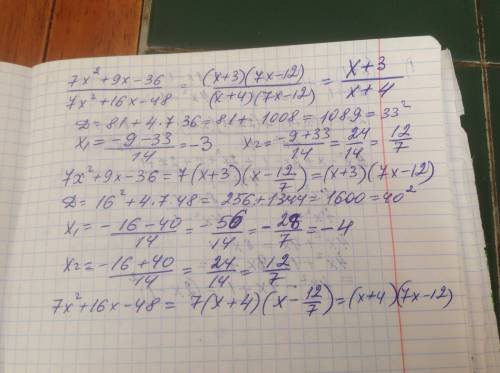 7x²+9x-36 / 7x²+16x-48 = (x+3)(7x-12) / (x+4)(7x-12) = x+3 / x+4
D=81+4.7 36=81+1008=1089=33²
x₁=-9-33 / 14=-3 x₂=-9+33 / 14=24 / 14=12 / 7
7x²+9x-36=7(x+3)(x-12/7)=(x+3)(7x-12)
D=16²+4.7.48=256+1344=1600=40²
x₁=-16-40 / 14=-56 / 14=-28 / 7=-4
x₂=-16+40 / 14=24 / 14=12 / 7
7x²+16x-48=7(x+4)(x-12/7)=(x+4)(7x-12)